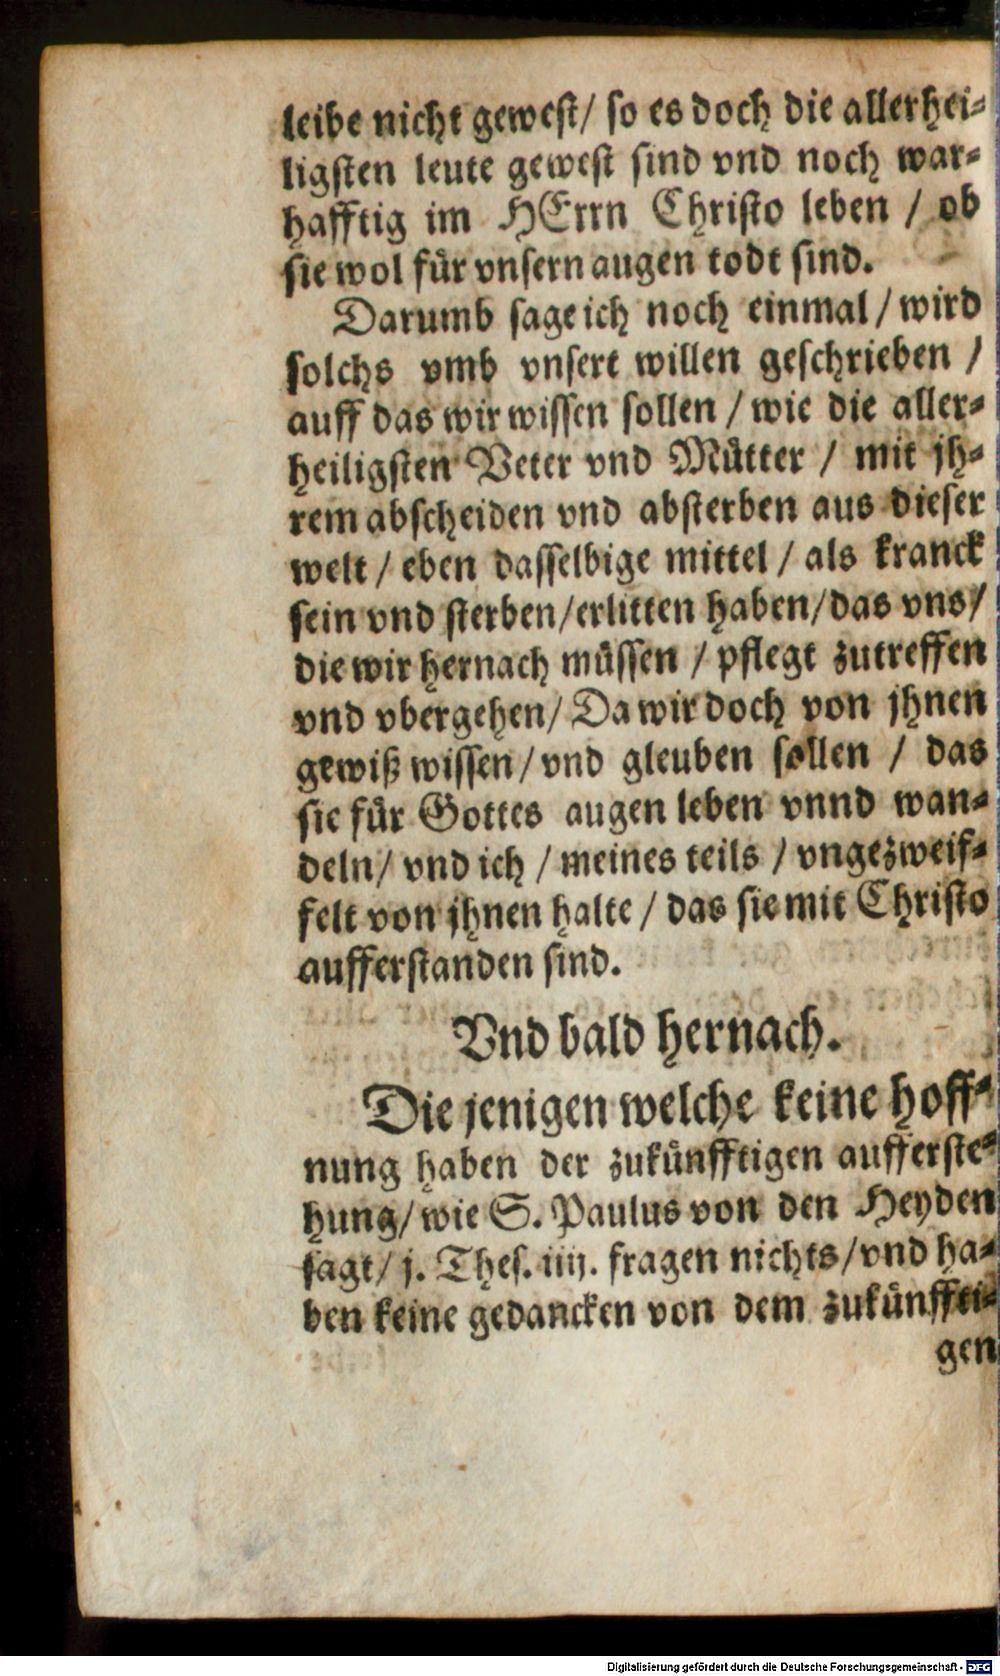 leibe nicht gewest/ so es doch die allerhei-
ligsten leute gewest sind vnd noch war-
hafftig im HErrn Christo leben / ob
sie wol für vnsern augen todt sind.
Darumb sage ich noch einmal / wird
solchs vmb vnsert willen geschrieben /
auff das wir wissen sollen / wie die aller-
heiligsten Veter vnd Mütter / mit jh-
rem abscheiden vnd absterben aus dieser
welt / eben dasselbige mittel / als kranck
sein vnd sterben/erlitten haben/das vns/
die wir hernach müssen / pflegt zutreffen
vnd vbergehen/ Da wir doch von jhnen
gewiß wissen/vnd gleuben sollen / das
sie für Gottes augen leben vnnd wan-
deln/ vnd ich / meines teils / vngezweif-
felt von jhnen halte / das sie mit Christo
aufferstanden sind.
Vnd bald hernach.
Die jenigen welche keine hoff-
nung haben der zukünfftigen aufferste-
hung/wie S. Paulus von den Heyden
sagt/ j. Thes. iiij. fragen nichts/vnd ha-
ben keine gedancken von dem zukünffti-
gen
Digitalisierung gefördert durch die Deutsche Forschungsgemeinschaft - DFG